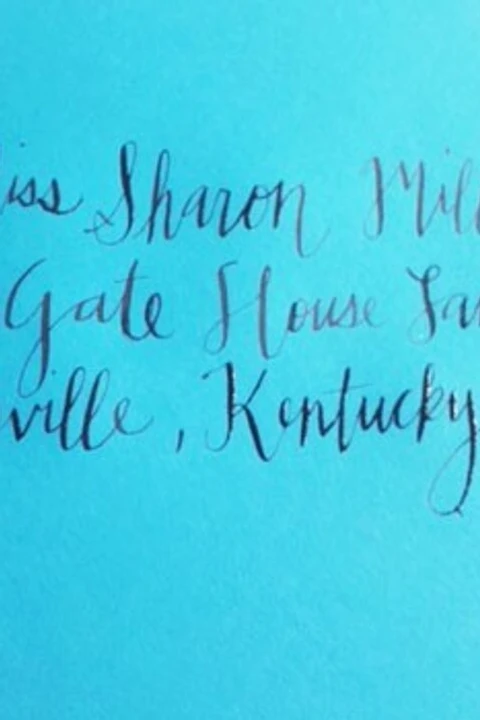 iss Sharon Mill
Gate House Lan
ville, Kentucky